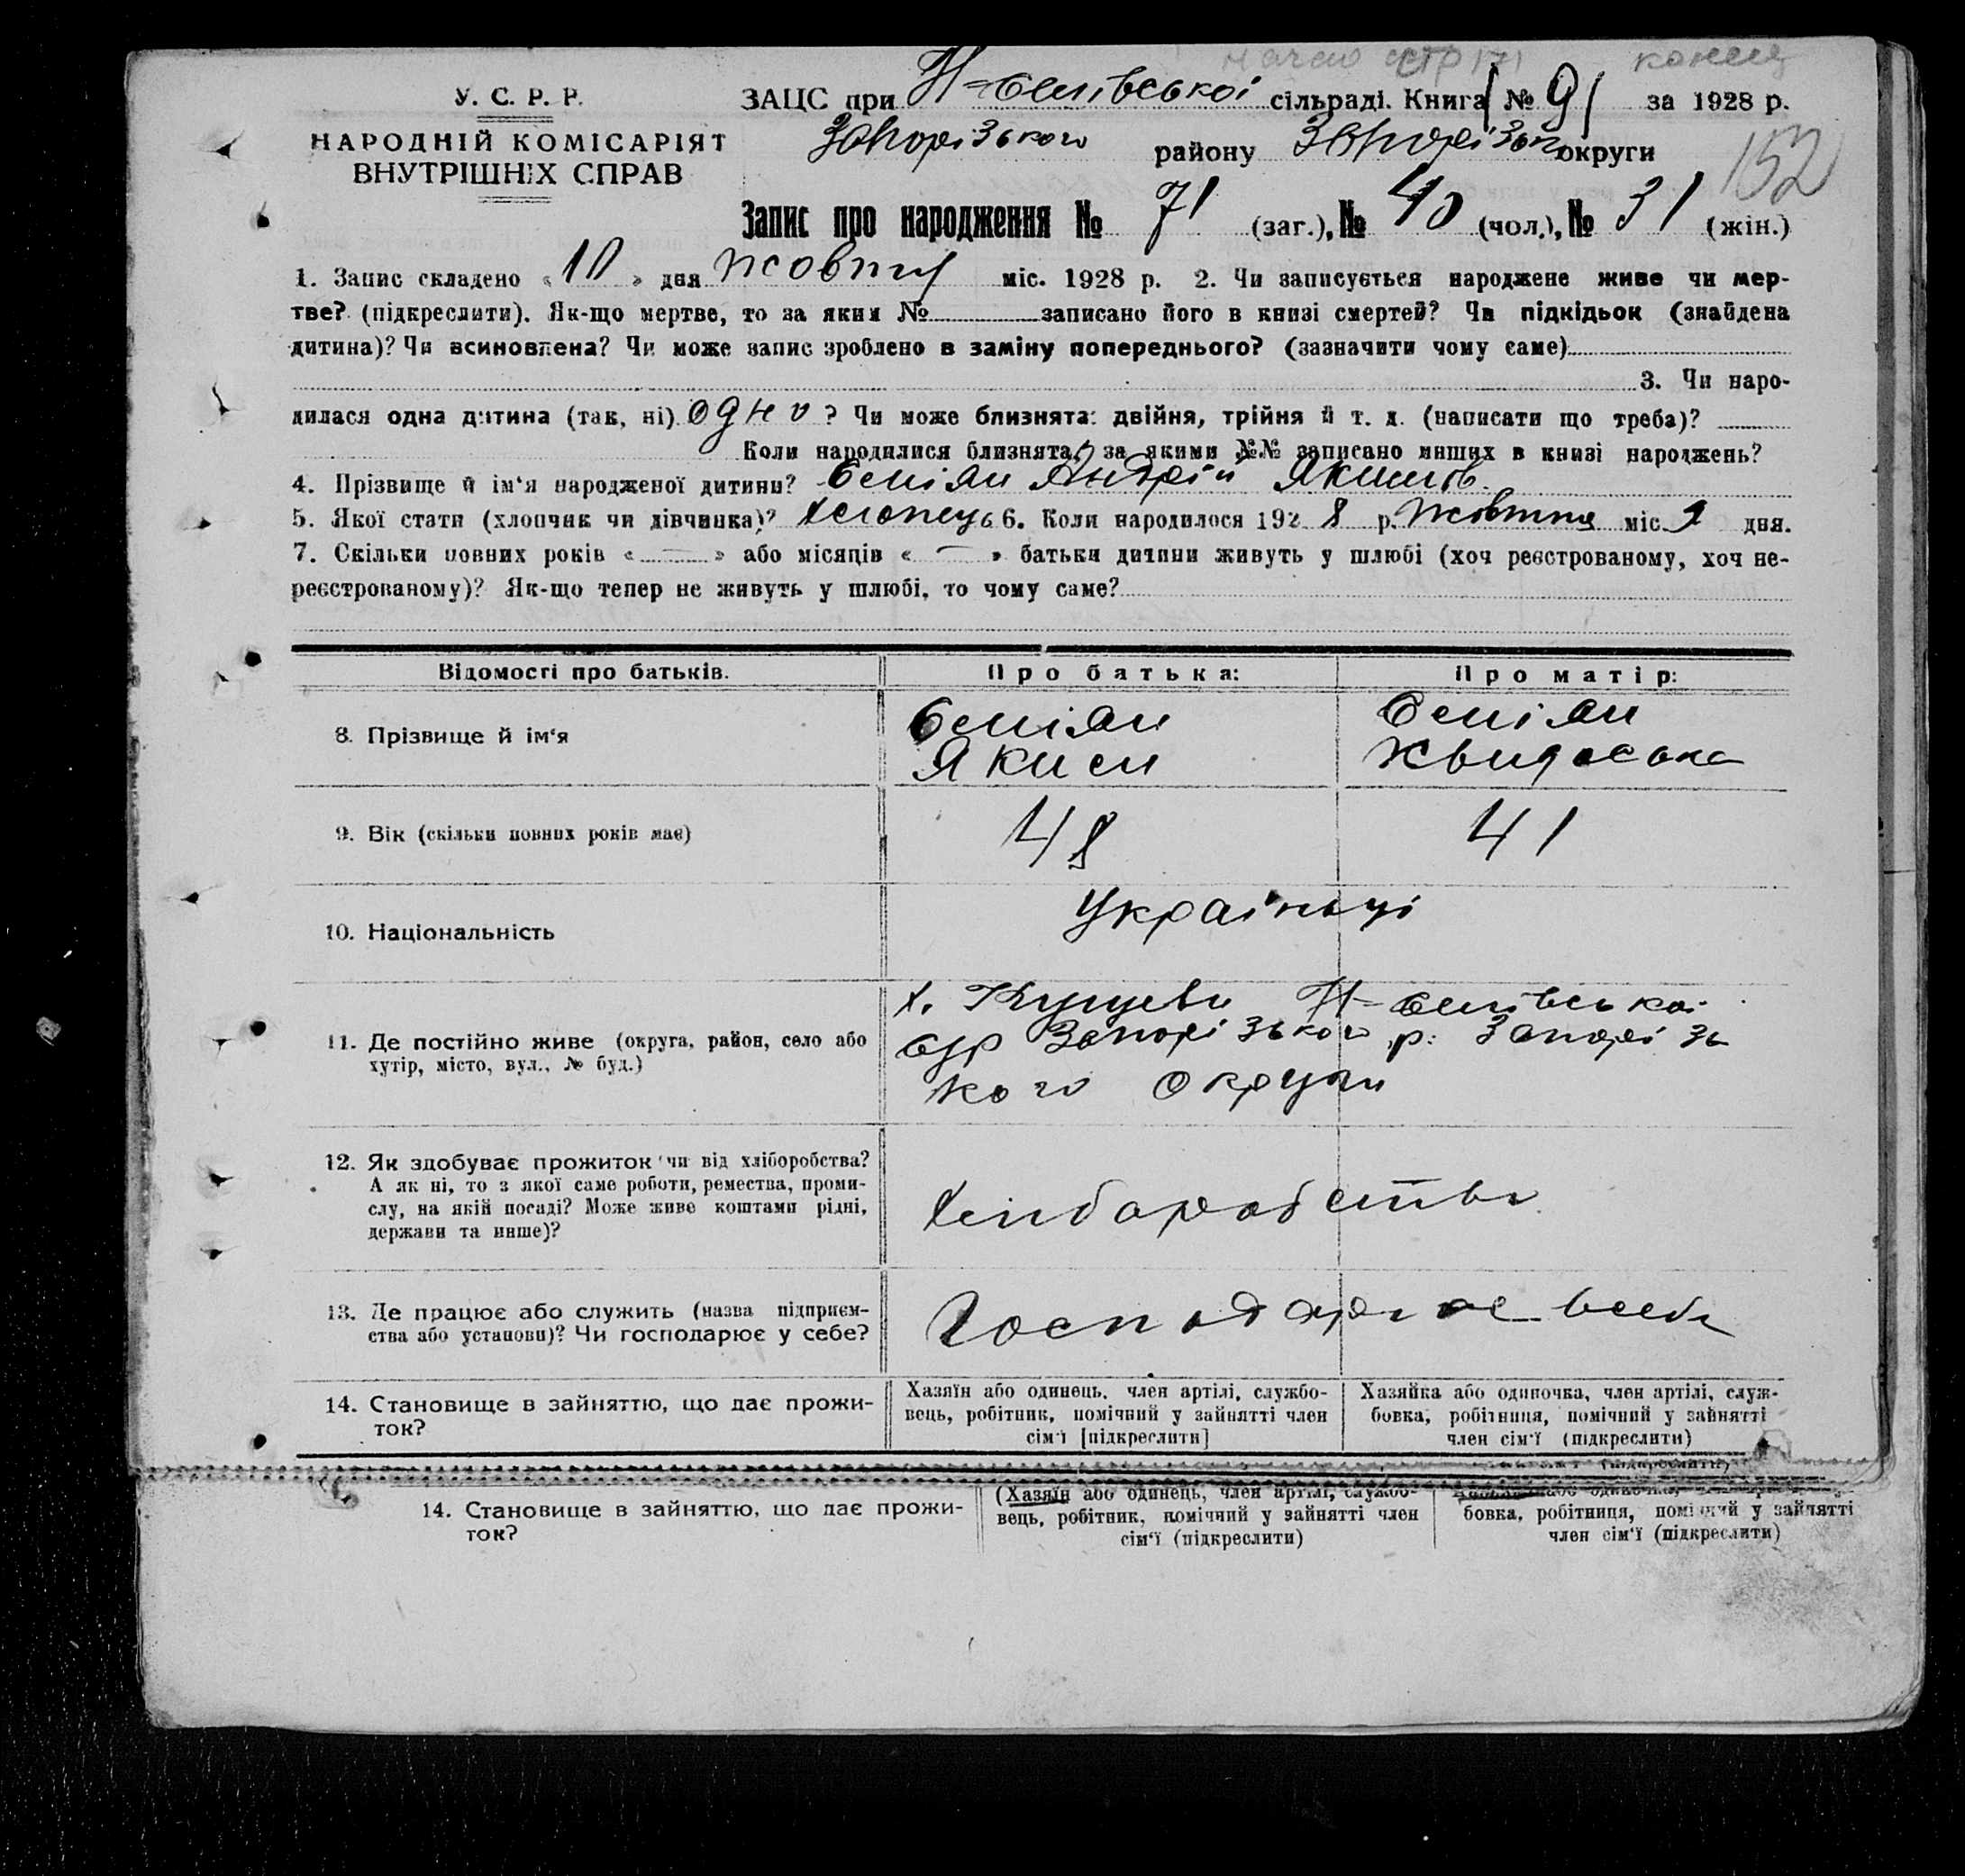 У. С. Р. Р.
НАРОДНІЙ КОМІСАРІЯТ
ВНУТРІШНІХ СПРАВ
ЗАЦС при сільраді. Книга № 91 за 1928 р.
Запорізького району Запорізьк округи
152
Запис про народження № 71 (заг.), № 40 (чол.), № 31 (жін.)
1. Запис складено « 10 » дня жовтня міс. 1928 р. 2. Чи записується народжене живе чи мер-
тве? (підкреслити). Як-що мертве, то за яким № записано його в книзі смертей? Чи підкідьок (знайдена
дитина)? Чи всиновлена? Чи може запис зроблено в заміну попереднього? (зазначити чому саме)
3. Чи наро-
дилася одна дитина (так, ні) одно ? Чи може близнята: двійня, трійня й т. д. (написати що треба)?
Коли народилися близнята, за якими №№ записано инших в книзі народжень?
4. Прізвище й ім'я народженої дитини? Андрій Якимов.
5. Якої стати (хлопчик чи дівчинка)? хлопець 6. Коли народилося 192 8 р. жовтня міс. 9 дня.
7. Скільки повних років « — » або місяців « — » батьки дитини живуть у шлюбі (хоч реєстрованому, хоч не-
реєстрованому)? Як-що тепер не живуть у шлюбі, то чому саме?
Відомості про батьків. Про батька: Про матір:
8. Прізвище й ім'я
Яким
9. Вік (скільки повних років має) 48 41
10. Національність Українці
11. Де постійно живе (округа, район, село або
хутір, місто, вул., № буд.)
х.
с/р Запорізького р. Запорізь
кого округи
12. Як здобуває прожиток чи від хліборобства?
А як ні, то з якої саме роботи, ремества, проми-
слу, на якій посаді? Може живе коштами рідні,
держави та инше)?
13. Де працює або служить (назва підприєм-
ства або установи)? Чи господарює у себе?
14. Становище в зайняттю, що дає прожи-
ток?
Хазяїн або одинець, член артілі, службо-
вець, робітник, помічний у зайнятті член
сім'ї [підкреслити]
Хазяйка або одиночка, член артілі, служ-
бовка, робітниця, помічний у зайнятті
член сім'ї (підкреслити)
14. Становище в зайняттю, що дає прожи-
ток?
(Хазяїн або одинець, член артілі, службо-
вець, робітник, помічний у зайнятті член
сім'ї (підкреслити)
бовка, робітниця, помічний у зайнятті
член сім'ї (підкреслити)